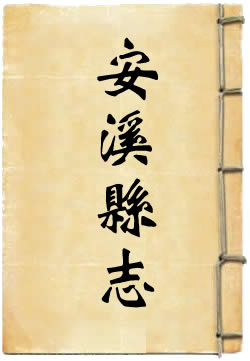 安溪縣志